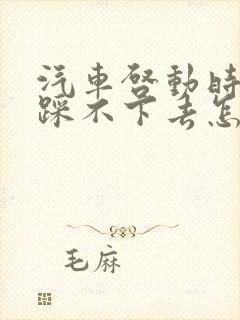 汽車啓動時
踩不下去怎
毛麻